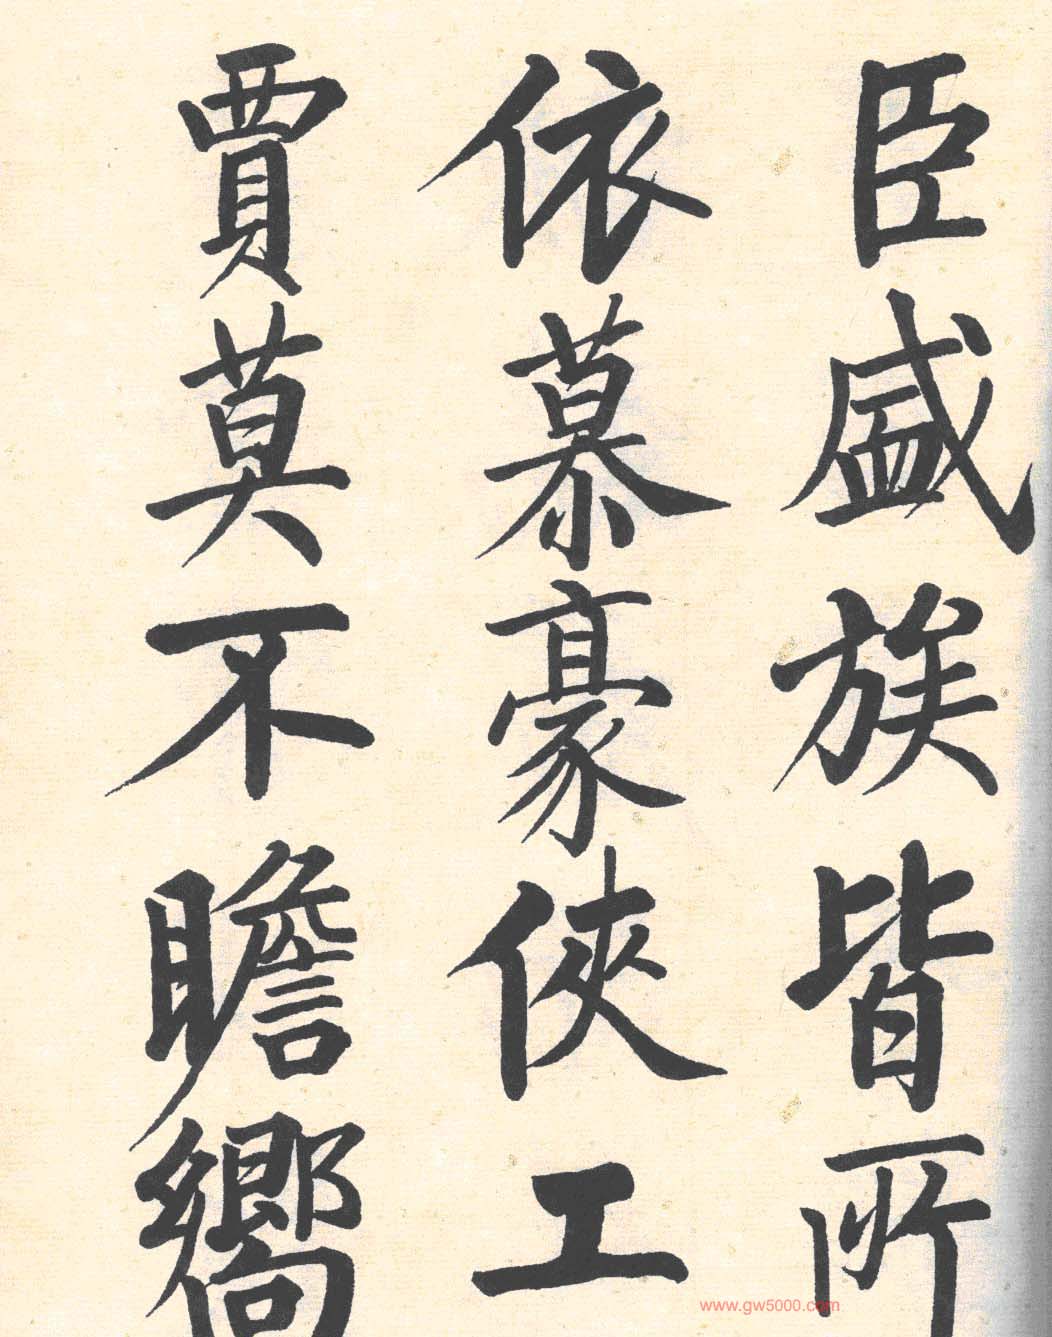 臣盛族皆所
依慕豪俠工
賈莫不瞻嚮
www.gw5000.com